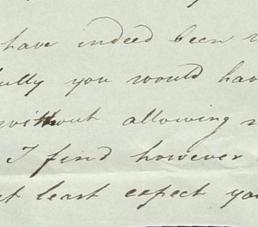 have indeed been
fully you would hav
without allowing
I find however
at least expect you